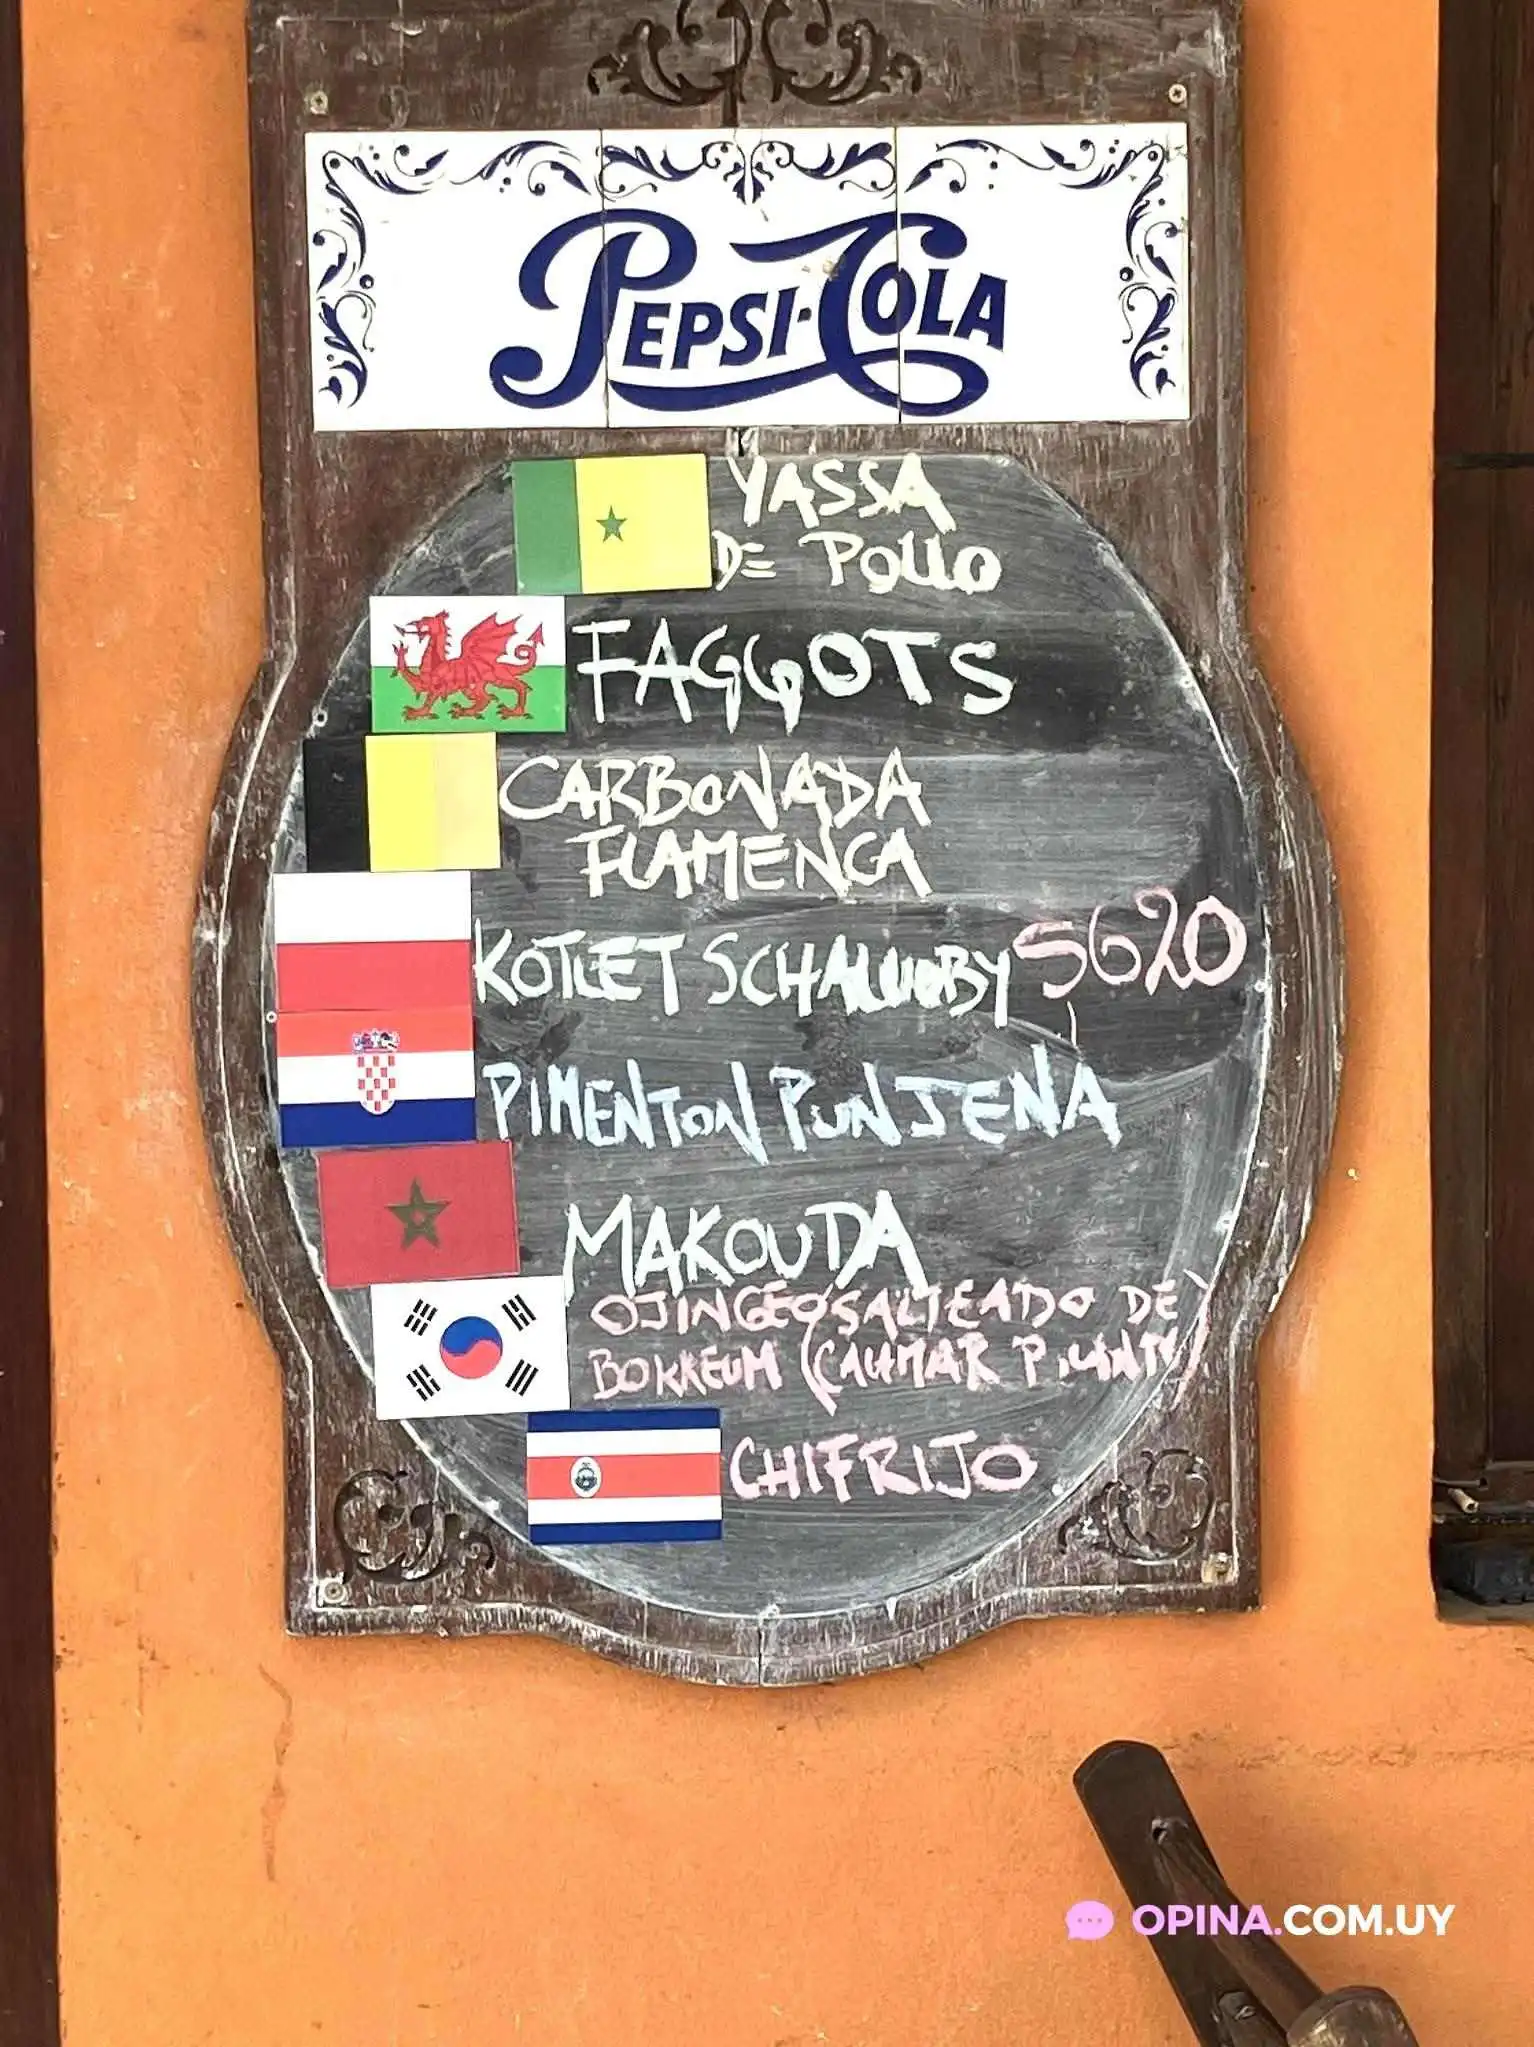 PEPSI-COLA
YASSA
DE POLLO
FAGGOTS
CARBONADA
FLAMENCA
KOTLET SCHALUOBY $620
PIMENTON PUNJENA
MAKOUDA
OJINGEO SALTEADO DE
BOKKEUM (CALAMAR PICANTE)
CHIFRIJO
OPINA.COM.UY